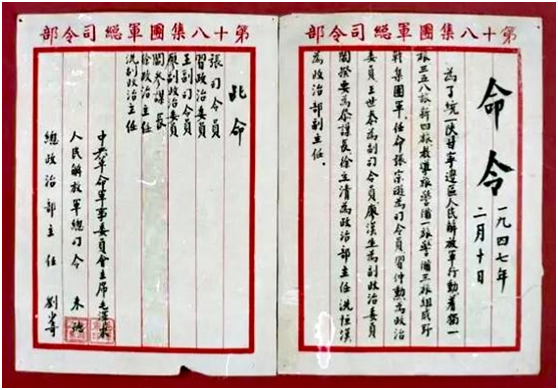 第十八集團軍總司令部
命令
一九四七年
二月十日
為了統一陝甘寧邊區人民解放軍行動，着獨一
旅三五八旅新四旅教導旅警備一旅警備三旅組成野
戰集團軍，任命張宗遜為司令員習仲勳為政治
委員王世泰為副司令員，廖漢生為副政治委員
閻揆要為參謀長，徐立清為政治部主任冼恒漢
為政治部副主任．
第十八集團軍總司令部
此命
張司令員
習政治委員
王副司令員
廖副政治委員
閻參謀長
徐政治主任
冼副政治主任
中央革命軍事委員會主席毛澤東
人民解放軍總司令 朱德
總政治部主任 劉少奇